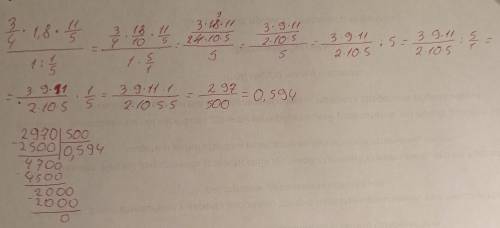 3/4 · 1,8 · 11/5 / 1:1/5 = 3/4 · 18/10 · 11/5 / 1 · 5/1 = 3·18·11 / 24·10·5 / 5 = 3·9·11 / 2·10·5 / 5 = 3 9 11 / 2·10·5 : 5 = 3 9 11 / 2·10·5 : 5/1 =
= 3 9 11 / 2·10·5 · 1/5 = 3·9·11·1 / 2·10·5·5 = 297 / 500 = 0,594
2970 | 500
-2500 | 0,594
4700
-4500
2000
-2000
0